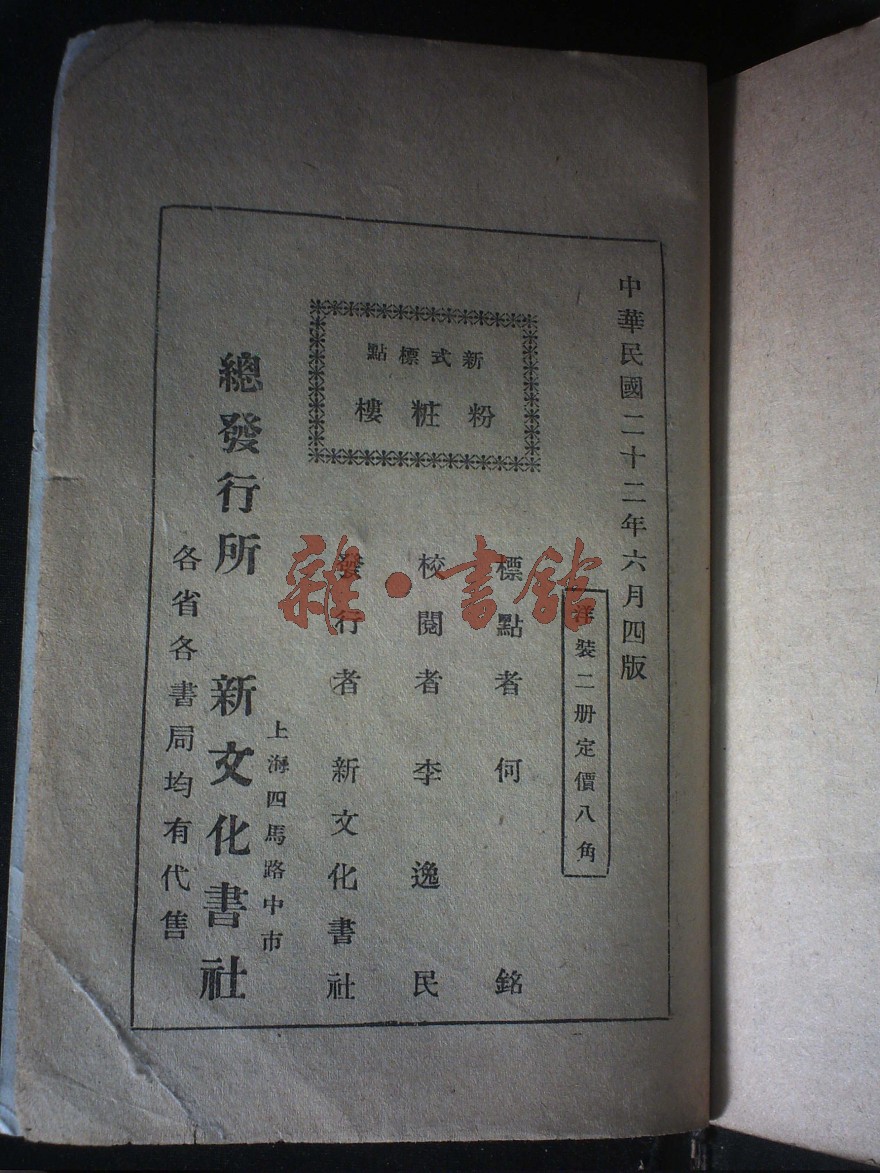 中華民國二十二年六月四版
洋裝二册定價八角
新式標點
粉粧樓
標點者何銘
校閱者李逸民
發行者新文化書社
上海四馬路中市
總發行所 新文化書社
各省各書局均有代售
雜·書館